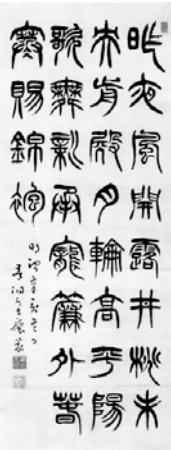 昨夜風開露井桃未
央前殿月輪高平陽
歌舞新承寵簾外春
寒賜錦袍